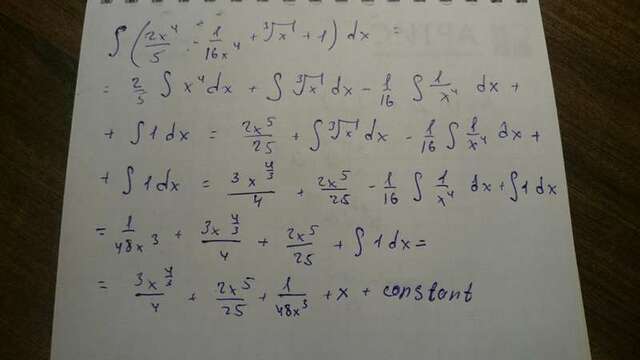 ∫ (2x⁴/5 - 1/16x⁴ + ³√x + 1) dx =
= 2/5 ∫ x⁴dx + ∫ ³√x dx - 1/16 ∫ 1/x⁴ dx +
+ ∫ 1 dx = 2x⁵/25 + ∫ ³√x dx - 1/16 ∫ 1/x⁴ dx +
+ ∫ 1 dx = 3x^(4/3)/4 + 2x⁵/25 - 1/16 ∫ 1/x⁴ dx + ∫ 1 dx
= 1/48x³ + 3x^(4/3)/4 + 2x⁵/25 + ∫ 1 dx =
= 3x^(4/3)/4 + 2x⁵/25 + 1/48x³ + x + constant